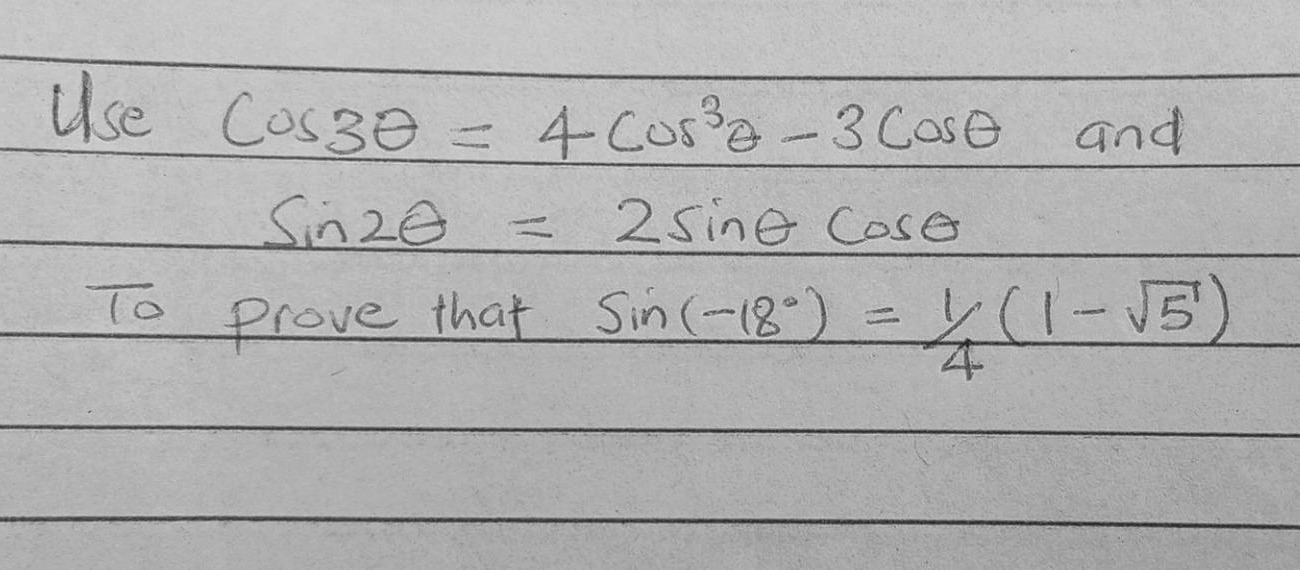 Use Cos3θ = 4 Cos³θ - 3 Cosθ and
Sin2θ = 2 Sinθ Cosθ
To prove that Sin(-18°) = 1/4 (1 - √5)